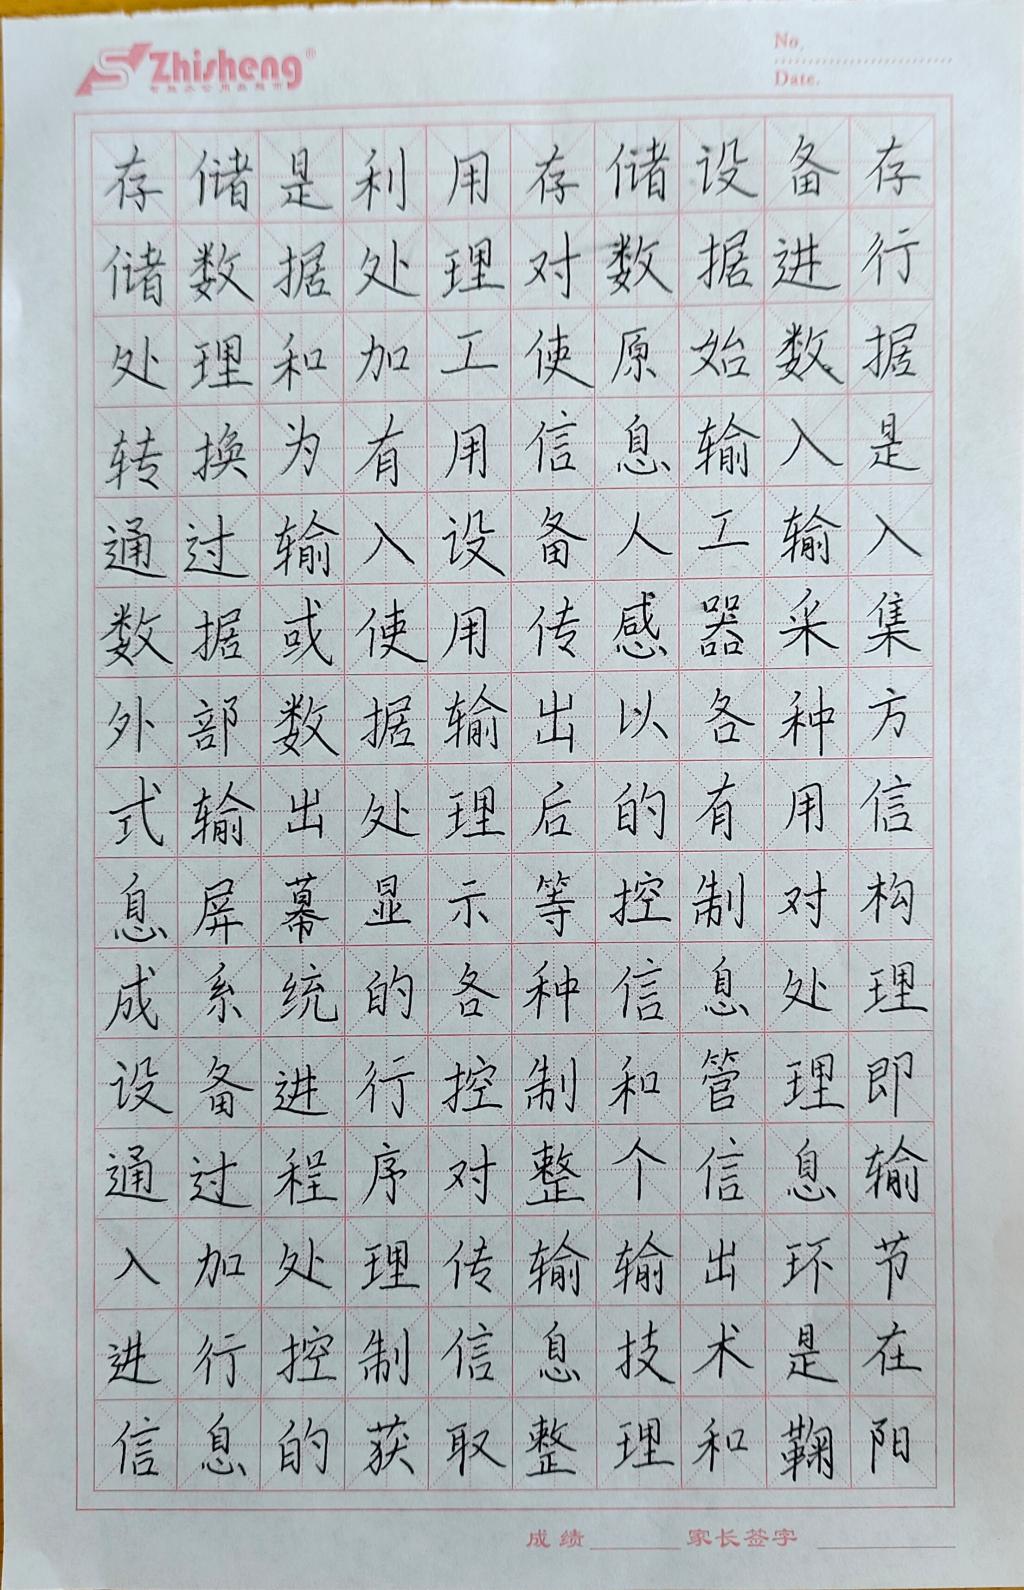 Zhisheng®
No.
Date.
存储是利用存储设备存
储数据处理对数据进行
处理和加工使原始数据
转换为有用信息输入是
通过输入设备人工输入
数据或使用传感器采集
外部数据输出以各种方
式输出处理后的有用信
息屏幕显示等控制对构
成系统的各种信息处理
设备进行控制和管理即
通过程序对整个信息输
入加处理传输输出环节
进行控制信息技术是在
信息的获取整理和鞠阳
成绩 家长签字